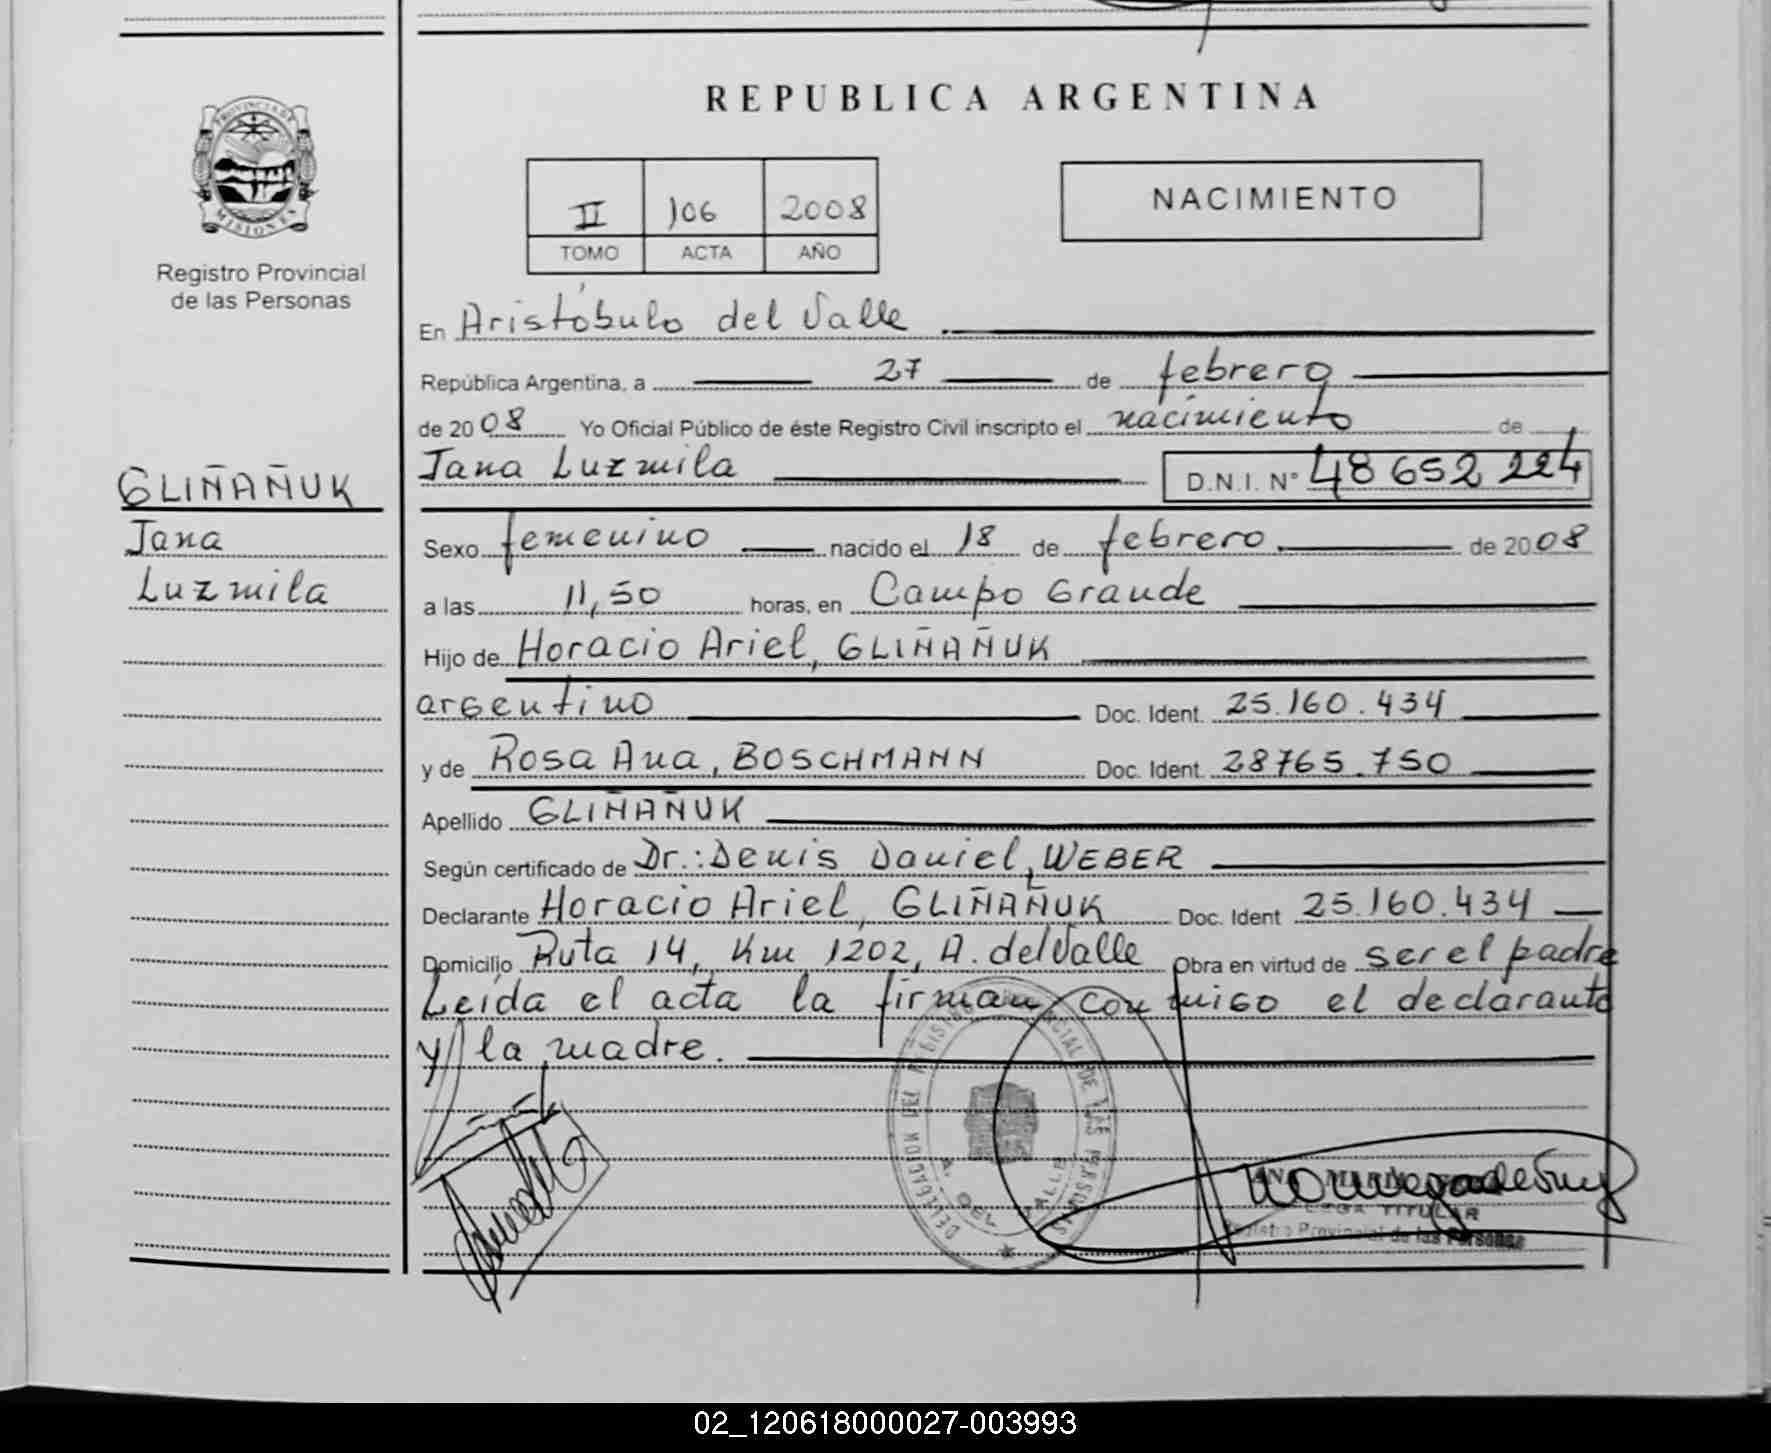 REPUBLICA ARGENTINA
PROVINCIA DE
MISIONES
Registro Provincial
de las Personas
II 106 2008
TOMO ACTA AÑO
NACIMIENTO
En Aristóbulo del Valle
República Argentina, a 27 de febrero
de 2008 Yo Oficial Público de éste Registro Civil inscripto el nacimiento de
Jana Luzmila D.N.I. N° 48 652 224
GLIÑAÑUK
Jana
Luzmila
Sexo femenino nacido el 18 de febrero de 2008
a las 11,50 horas, en Campo Grande
Hijo de Horacio Ariel, GLIÑAÑUK
argentino Doc. Ident. 25.160.434
y de Rosa Ana, BOSCHMANN Doc. Ident. 28765.750
Apellido GLIÑAÑUK
Según certificado de Dr.: Denis Daniel, WEBER
Declarante Horacio Ariel, GLIÑAÑUK Doc. Ident 25.160.434
Domicilio Ruta 14, Km 1202, A. del Valle Obra en virtud de ser el padre
Leída el acta la firman conmigo el declarante
y la madre.
DELEGACION DEL REGISTRO PROVINCIAL DE LAS PERSONAS
A. DEL VALLE
TITULAR
Registro Provincial de las Personas
02_120618000027-003993